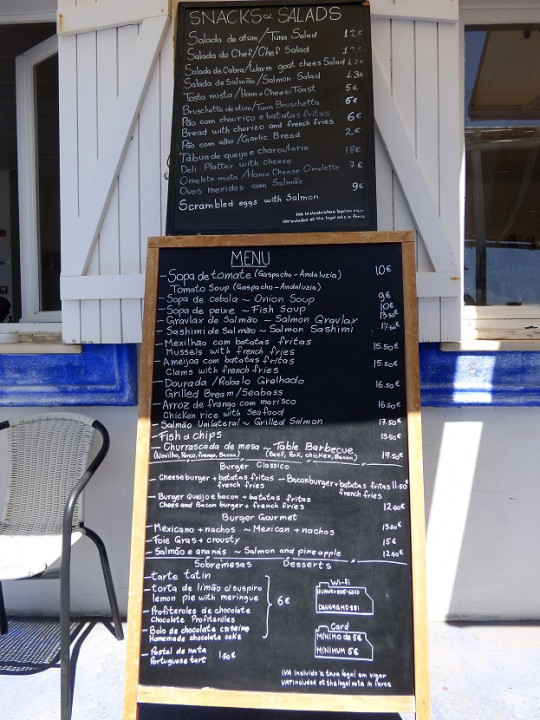 SNACKS & SALADS
Salada de atum/Tuna Salad 12€
Salada do Chef/Chef Salad
Salada de Cabra/Warm goat chees Salad
Salada de Salmão/Salmon Salad 13€
Tosta mista/Ham & Cheese Toast 5€
Bruschetta de atum/Tuna Bruschetta 6€
Pão com chouriço e batatas fritas 6€
Bread with chorizo and french fries
Pão com alho/Garlic Bread 2€
Tábua de queijo e charcutaria 18€
Deli Platter with cheese
Omelete mista/Ham & Cheese Omelette 7€
Ovos mexidos com Salmão
Scrambled eggs with Salmon 9€
IVA incluido à taxa legal em vigor
VAT included at the legal rate in force
MENU
- Sopa de tomate (Gaspacho - Andaluzia) 10€
Tomato Soup (Gaspacho - Andaluzia)
- Sopa de cebola ~ Onion Soup 9€
- Sopa de peixe ~ Fish Soup 10€
- Gravlax de Salmão - Salmon Gravlax 13.50€
- Sashimi de Salmão ~ Salmon Sashimi 17.50€
- Mexilhão com batatas fritas 15.50€
Mussels with french fries
- Ameijoa com batatas fritas 15.50€
Clams with french fries
- Dourada /Robalo Grelhado 16.50€
Grilled Bream/Seabass
- Arroz de frango com marisco 16.50€
Chicken rice with seafood
- Salmão Unilateral ~ Grilled Salmon 17.50€
- Fish & chips 13.50€
- Churrascada de mesa ~ Table Barbecue 19.50€
(Novilho, Porco, frango, Bacon) (Beef, Pork, chicken, Bacon)
Burger Classico
- Cheeseburger + batatas fritas - Baconburger + batatas fritas 11.50€
french fries french fries
- Burger Queijo e bacon + batatas fritas
Chees and Bacon burger + french fries 12.00€
Burger Gourmet
- Mexicano + nachos ~ Mexican + nachos 13.00€
- Foie Gras + crousty 15€
- Salmão e ananás ~ Salmon and pineapple 12.00€
Sobremesas Desserts
- tarte tatin
- torta de limão c/suspiro
lemon pie with meringue
- Profiteroles de chocolate 6€
Chocolate Profiteroles
- Bolo de chocolate caseiro
Homemade chocolate cake
- Pastel de nata 1.50€
Portuguese tart
Wi-fi
Card
MÍNIMO de 5€
MINIMUM 5€
IVA incluido à taxa legal em vigor
VAT included at the legal rate in force